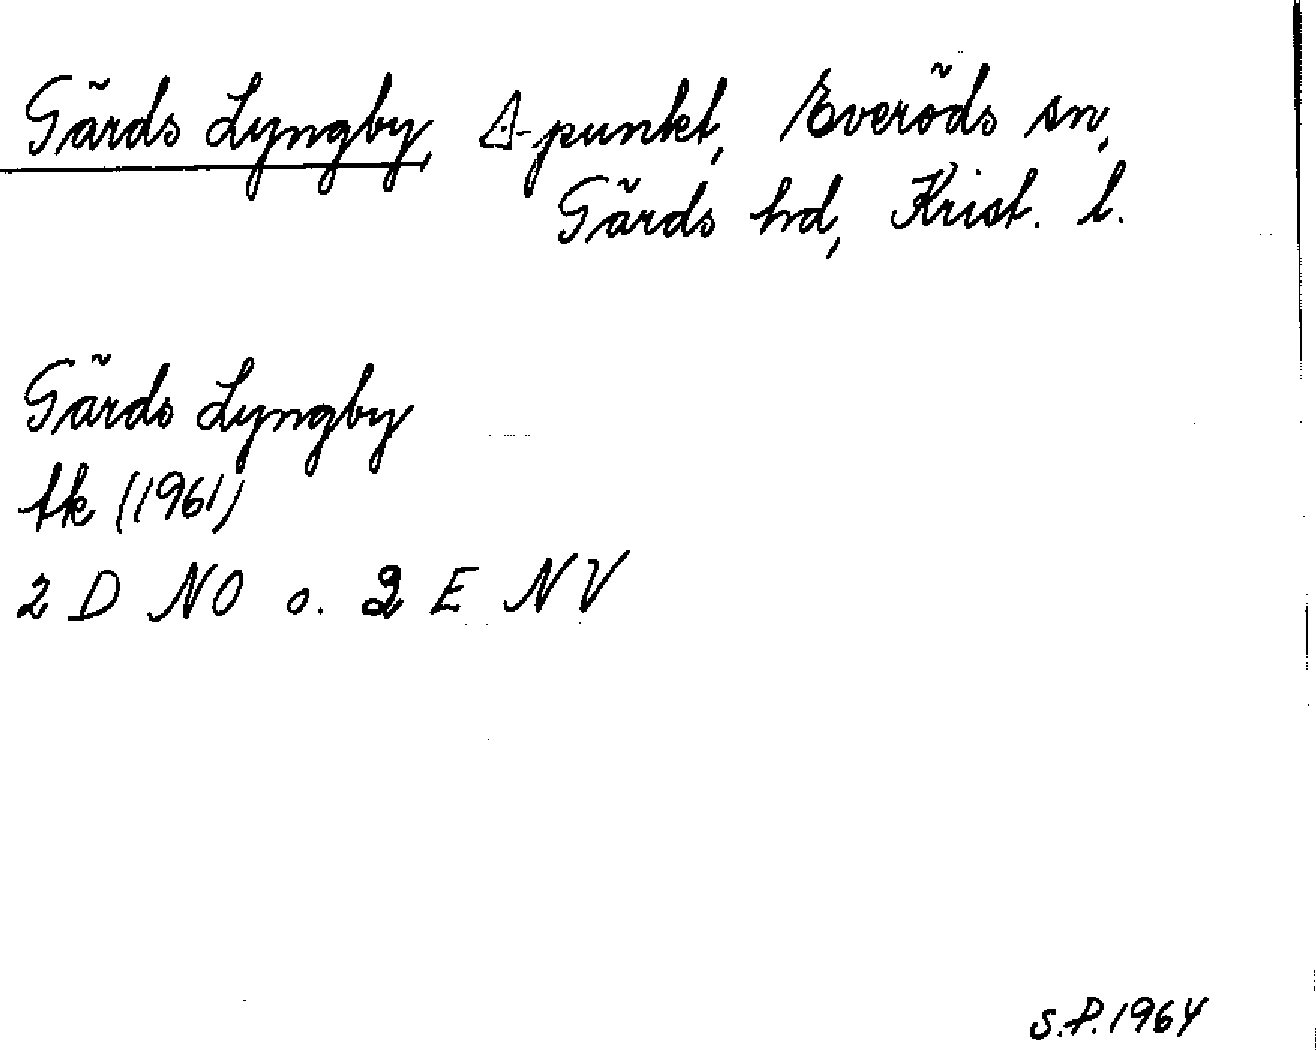 Gärds Lyngby, △-punkt, Everöds sn,
Gärds hd, Krist. l.
Gärds Lyngby
tk (1961)
2 D NO o. 2 E NV
S.P. 1964